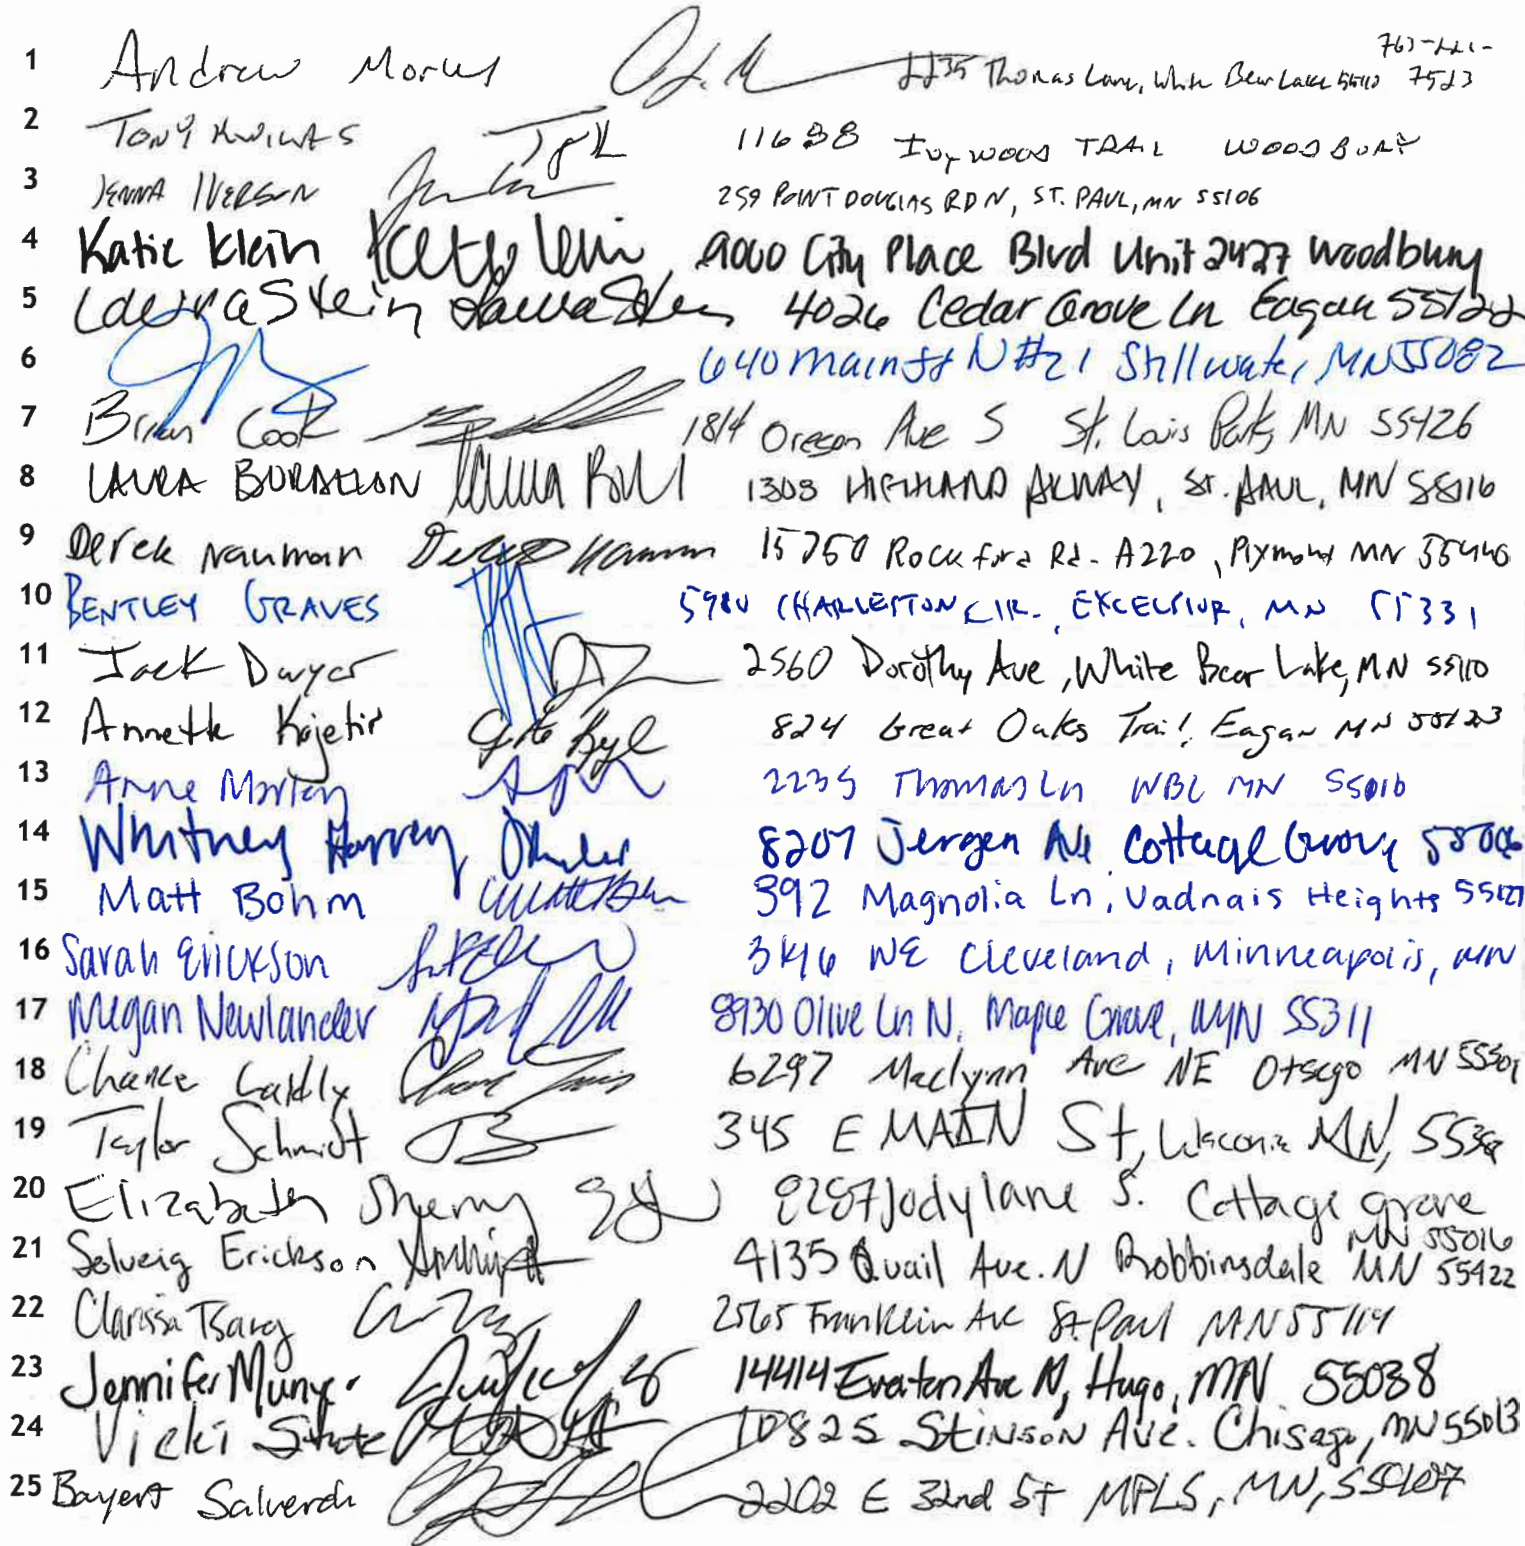 763-221-
1 Andrew Morus 2235 Thomas Lane, White Bear Lake 55110 7523
2 TONY KWILAS 11688 Ivywood TRAIL WOODBURY
3 JENNA IVERSON 259 POINT DOUGLAS RD N, ST. PAUL, MN 55106
4 Katie Klein 9000 City Place Blvd Unit 2427 Woodbury
5 Laura Stein Laura Stein 4026 Cedar Grove Ln Eagan 55122
6 640 Main St N #21 Stillwater, MN 55082
7 Brian Cook 1814 Oregon Ave S St. Louis Park, MN 55426
8 LAURA BORDELON 1303 HIGHLAND PKWAY, ST. PAUL, MN 55116
9 Derek Nauman 15750 Rockford Rd. A220, Plymouth MN 55446
10 BENTLEY GRAVES 5980 CHARLESTON CIR., EXCELSIOR, MN 55331
11 Jack Dwyer 2560 Dorothy Ave, White Bear Lake, MN 55110
12 Annette Kojetin 824 Great Oaks Trail Eagan MN 55123
13 Anne Morton 2235 Thomas Ln WBL MN 55010
14 Whitney Harvey 8207 Jergen Ave Cottage Grove 55016
15 Matt Bohm 392 Magnolia Ln, Vadnais Heights 55127
16 Sarah Erickson NE Cleveland, Minneapolis, MN
17 Megan Newlander 8930 Olive Ln N, Maple Grove, MN 55311
18 Chance 6297 Maclynn Ave NE Otsego MN
19 Taylor Schmidt 345 E MAIN St, Waconia MN,
20 Elizabeth Sherry 8287 Jody lane S. Cottage grove
MN 55016
21 Solveig Erickson 4135 Quail Ave. N Robbinsdale MN 55422
22 Clarissa Tsang 2565 Franklin Ave St. Paul MN 55114
23 Jennifer Munyer 14414 Everton Ave N, Hugo, MN 55038
24 Vicki Stute 10825 Stinson Ave. Chisago, MN 55013
25 Bayert Salverda 2202 E 32nd St MPLS, MN, 55407